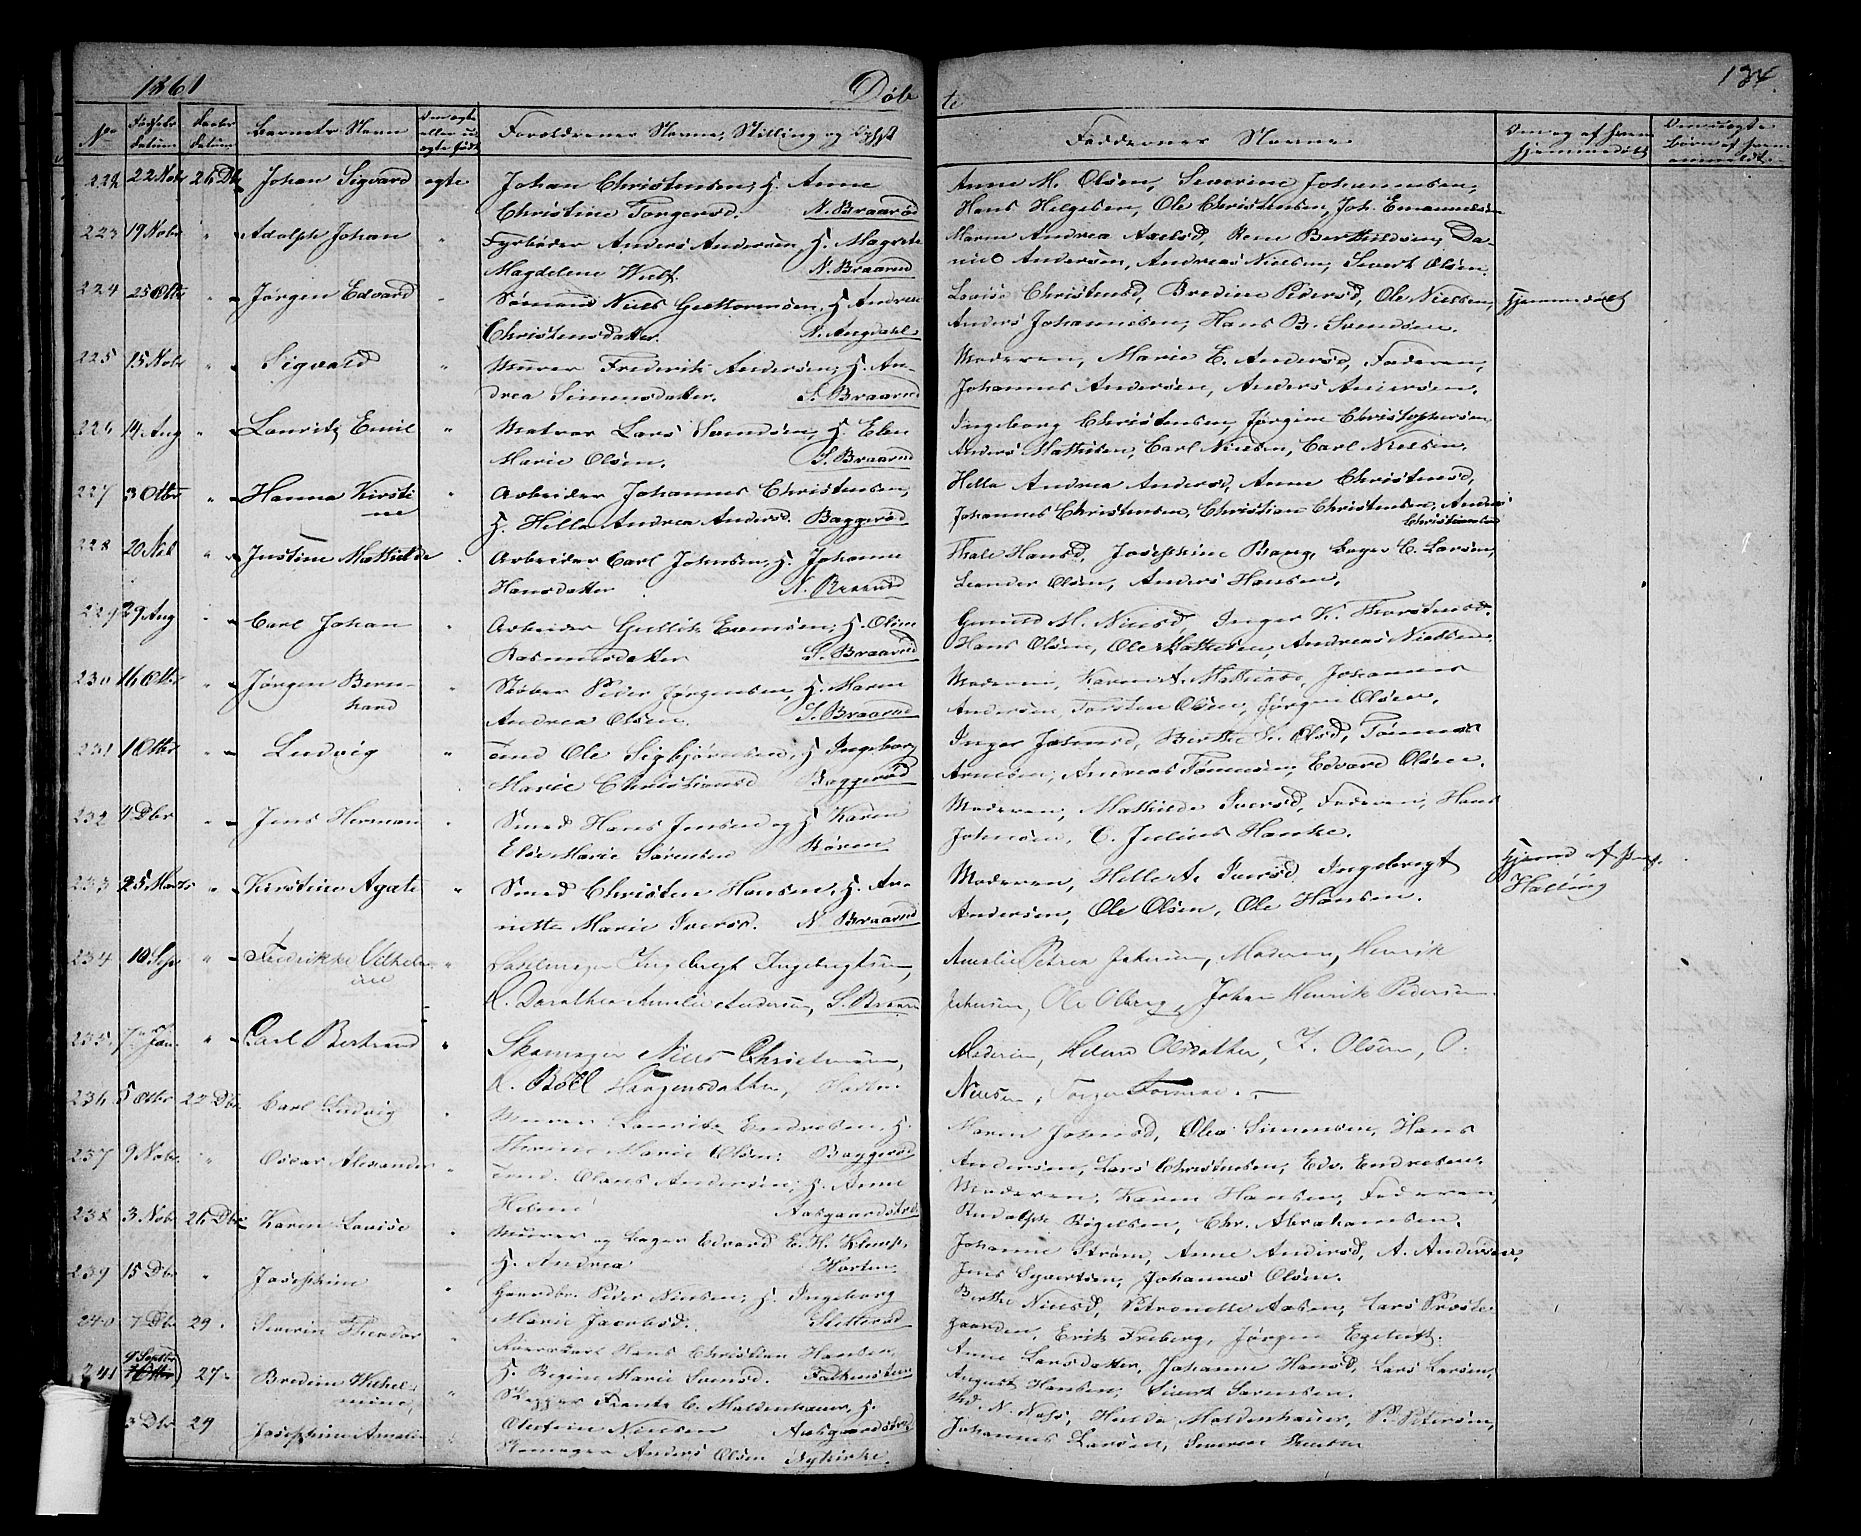 1861
Døb
te
134.
No
Fødsels
datum
Daabs
datum
Barnets Navn
Om ægte
eller u-
ægte født
Forældrenes Navne, Stilling og
Faddernes Navne
222 22 Nobr 26 Dbr Johan Sigvard ægte Johan Christensen, H. Anne
Christine Torgersd. N. Braarød
Anne M. Olsen, Severine Johannesen,
Hans Helgesen, Ole Christensen, Joh. Emanuelsen
223 19 Nobr " Adolph Johan " Fyrbøder Anders Andersen, H. Magrete
Magdelene N. Braarud
Maren Andrea Axelsd, Berthildsen, Da-
niel Andersen, Andreas Nielsen, Sivert Olsen.
224 25 Otbr " Jørgen Edvard " Sømand Niels Guttormsen, H. Andrea
Christensdatter.
Lovise Christensd, Bredine Pedersd, Ole Nielsen, Hjemmedøbt
Anders Johannesen, Hans B. Svendsen.
225 15 Nobr " Sigvald " Murer Frederik Andersen, H. An-
drea Simensdatter. S. Braarud
Moderen, Marie E. Andersd, Faderen,
Johannes Andersen, Anders Andersen.
226 14 Aug " Lauritz Emil " Matros Lars Svendsen, H. Elen
Marie Olsen. S. Braarud
Ingeborg Christensen, Jørgine Christophersen
Anders Mathisen, Carl Nielsen, Carl Nielsen.
227 3 Otbr " Hanna Kirsti " Arbeider Johannes Christensen,
ne H. Hella Andrea Andersd. Baggerød
Hella Andrea Andersd, Anne Christensd,
Johannes Christensen, Christian Christensen, Anders
Christiansen
228 20 " Justine Mathilde Arbeider Carl Johnsen, H. Johanne
Hansdatter N. Braarud
Thale Hansd, Josephine Bang, Bager C. Larsen,
Leander Olsen, Anders Hansen.
229 29 Aug " Carl Johan " Arbeider Gullik Evensen, H. Oline
Rasmusdatter S. Braarud
Gunild M. Nielsd, Inger K. Thorstensd.
Hans Olsen, Ole Mathisen, Andreas Nielsen.
230 16 Otbr " Jørgen Bern- " Peder Jørgensen, H. Maren
hard Andrea Olsen. S. Braarud
Moderen, Karen A. Mathiasd, Johannes
Andersen, Torsten Olsen, Jørgen Olsen.
231 1 Otbr " Ludvig " Ole Sigbjørnsen, H. Ingeborg
Marie Christiansd Baggerød
Inger Johnsd, Birthe K. Olsd, Tønnes
Arnesen, Andreas Tønnesen, Edvard Olsen.
232 4 Dbr " Jens Herman " Smed Hans Jensen og H. Karen
Else Marie Sørensen Røren
Moderen, Mathilde Iversd, Faderen, Hans
Johnsen, C. Julius Hanke.
233 25 Marts " Kirstine Agate " Smed Christen Hansen, H. An-
nette Marie Iversd. N. Braarud
Moderen, Iversd, Ingebregt Hjemd af Præst.
Andersen, Ole Olsen, Ole Hansen. Halling
234 10 Sept " Fredrikke Vilhelm- " Sadelmager Ingebregt Ingebregtsen,
ine H. Dorothea Amelie Andersen, S. Braarud
Amelie Petrea Jakobsen, Moderen, Henrik
Jakobsen, Ole Oberg, Johan Henrik Pedersen.
235 7 Jan. " Carl Bertrand " Skomager Niels Christensen,
H. Torgersdatter, Horten.
Moderen, Helene Olsdatter, K. Olsen, O.
Nielsen, Torger
236 5 Otbr 22 Dbr Carl Ludvig " Murer Lauritz Endresen, H.
Herine Marie Olsen. Baggerød
Maren Johnsd, Olea Simensen, Hans
Andersen, Lars Christensen, Edv. Endresen.
237 9 Nobr " Oscar Alexander " Olaus Andersen, H. Anne
Helene Aasgaardstrd
Moderen, Karen Hansen, Faderen,
Rudolph Bøgelsen, Chr. Abrahamsen.
238 3 Nobr 26 Dbr Karen Lovise " Murer og Bager Edvard E. H. Klemp,
H. Andrea Horten.
Johanne Strøm, Anne Andersd, A. Andersen,
Jens Syvertsen, Johannes Olsen.
239 15 Dbr " Josephine " Gaardbr. Peder Nielsen, H. Ingeborg
Marie Jacobsd. Sletterød
Berthe Nielsd, Petronelle Aasen, Lars Præste-
gaarden, Erik Freberg, Jørgen
240 7 Dbr 29 " Severin Theodor " Hans Christian Hansen,
H. Regine Marie Svensd. Falkensten
Anne Larsdatter, Johanne Hansd, Lars Larsen,
August Hansen, Sivert Sørensen.
241 9 Septbr 27 " Bredine Vilhel- " Skipper Frants C. Moldenhauer, H.
mine, Olufine Nielsen Aasgaardstrd
Md. N. Nass, Hulda Moldenhauer, P. Petersen,
Johannes Larsen, Severin
3 Dbr 29 Josephine Amalie Skomager Anders Olsen Nykirke